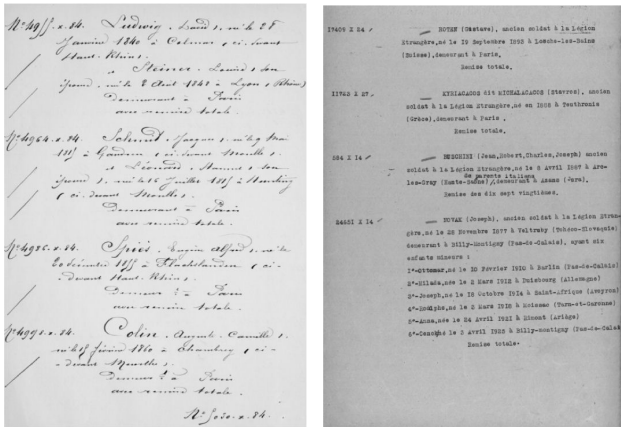 Nº 4955. x. 84. Ludwig, Louis, né le 28
Janvier 1840 à Colmar, ci-devant
Haut-Rhin,
et Steiner, Louise, son
épouse, née le 2 Août 1842 à Lyon (Rhône)
Demeurant à Paris
avec remise totale.
Nº 4964. x. 84. Schmit, Jacques, né le 9 Mai
1855 à
et Léonard,
épouse, née le 15 Juillet 1855 à
ci-devant Moselle,
Demeurant à Paris
avec remise totale.
Nº 4986. x. 84. Spies, Eugène Alfred, né le
20 décembre 1855 à Flachslanden, ci-
-devant Haut-Rhin,
Demeurt à Paris
avec remise totale.
Nº 4998. x. 84. Colin, Auguste, Camille,
né le 15 février 1860 à Chambrey, ci-
-devant Meurthe,
Demeurt à Paris
avec remise totale.
Nº 5020. x. 84.
17409 X 24 ROYAN (Gustave), ancien soldat à la Légion
Etrangère, né le 19 Septembre 1893 à Loeche-les-Bains
(Suisse), demeurant à Paris.
Remise totale.
11728 X 27. KYRIACACOS dit MICHALACACOS (Stavros), ancien
soldat à la Légion Etrangère, né en 1888 à Teuthronis
(Grèce), demeurant à Paris.
Remise totale.
394 X 14 RUSCHINI (Jean, Robert, Charles, Joseph) ancien
soldat à la Légion Etrangère, né le 8 Avril 1887 à Arc-
de parents italiens
les-Gray (Haute-Saône), demeurant à Azans (Jura).
Remise des dix sept vingtièmes.
24551 X 14 NOVAK (Joseph), ancien soldat à la Légion Etran-
gère, né le 28 Novembre 1877 à Veltruby (Tchéco-Slovaquie)
demeurant à Billy-Montigny (Pas-de-Calais), ayant six
enfants mineurs :
1°-Ottomar, né le 10 Février 1910 à Berlin (Pas-de-Calais)
2°-Milada, née le 2 Mars 1912 à Duisbourg (Allemagne)
3°-Joseph, né le 18 Octobre 1914 à Saint-Afrique (Aveyron)
4°-Rodolphe, né le 3 Mars 1918 à Moissac (Tarn-et-Garonne)
5°-Anna, née le 24 Avril 1921 à Rimont (Ariège)
né le 3 Avril 1923 à Billy-Montigny (Pas-de-Calais)
Remise totale.